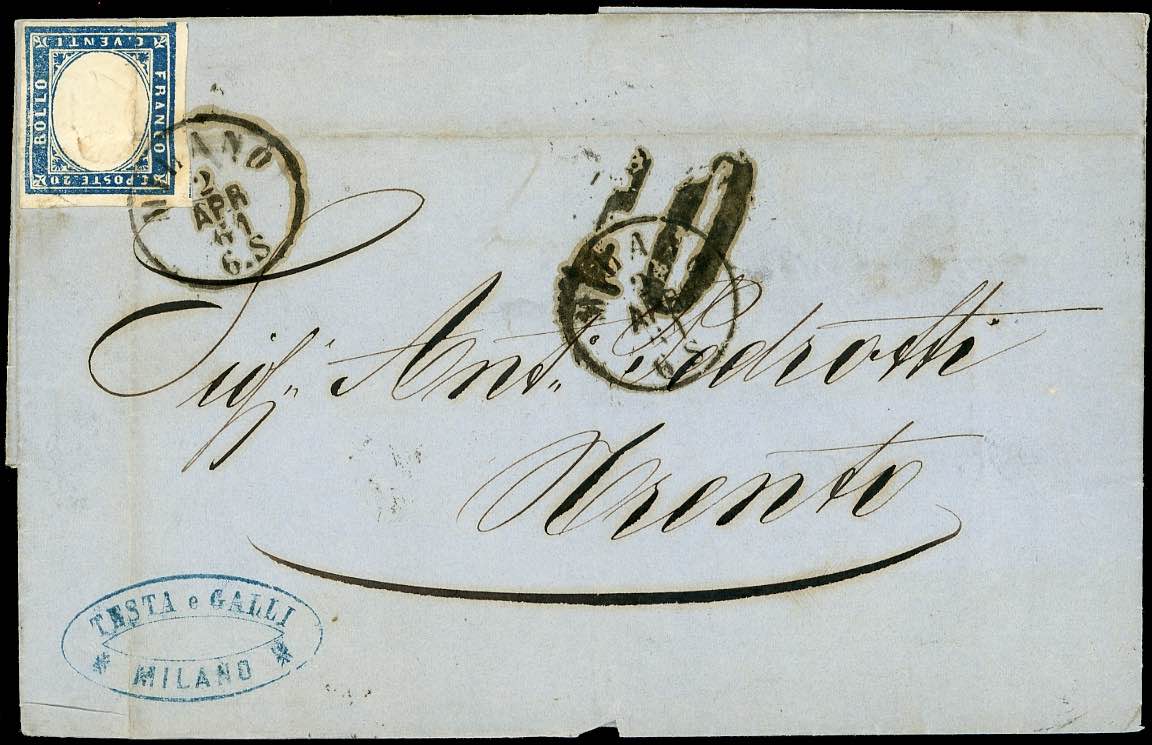 C. VENTI
BOLLO
FRANCO
C. POSTE 20
MILANO
2
APR
61
6.S
10
MILANO
2
APR
61
6.S
Sig.r Ant.o Pedrotti
Trento
TESTA e GALLI
MILANO